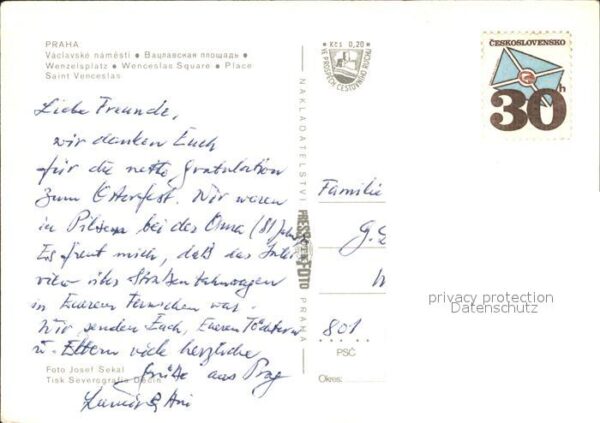 PRAHA
Václavské náměstí ● Вацлавская площадь ●
Wenzelsplatz ● Wenceslas Square ● Place
Saint Venceslas
Liebe Freunde,
wir danken Euch
für die nette Gratulation
zum Osterfest. Wir waren
in Pilsen bei der Oma (81 Jahre)
Es freut mich, daß das Inter-
view über Straßenbahnwagen
in Eurem Fernsehen war.
Wir senden Euch, Euren Töchtern
u. Eltern viele herzliche
Grüße aus Prag
Foto Josef Sekal
Tisk Severografia Děčín
Kčs 0,20
VE PROSPĚCH CESTOVNÍHO RUCHU
NAKLADATELSTVÍ
PRESSFOTO
PRAHA
ČESKOSLOVENSKO
30h
Familie
G.
801
PSČ
Okres:
privacy protection
Datenschutz